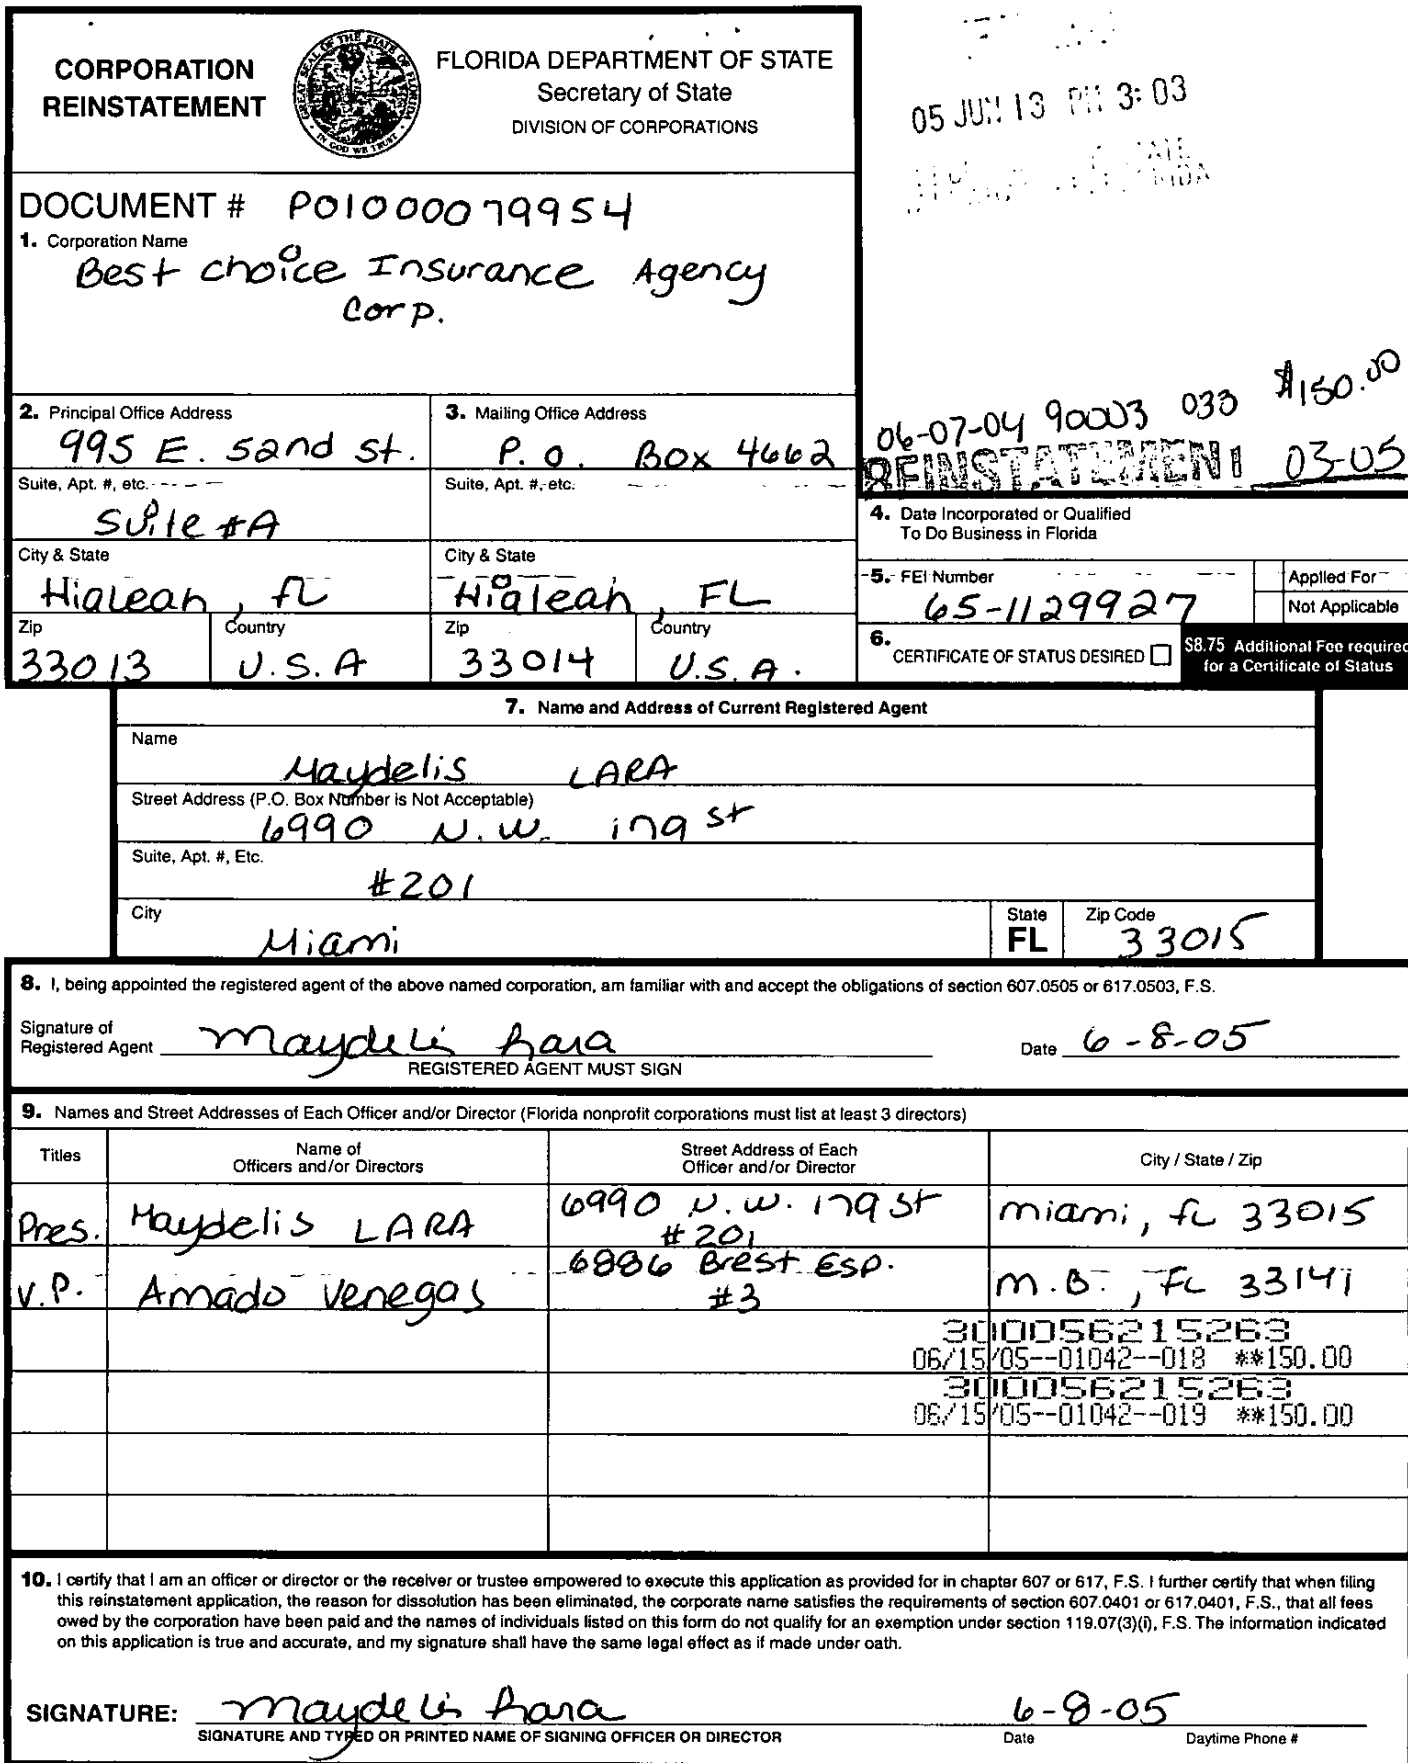 CORPORATION
REINSTATEMENT
GREAT SEAL OF THE STATE OF FLORIDA
IN GOD WE TRUST
FLORIDA DEPARTMENT OF STATE
Secretary of State
DIVISION OF CORPORATIONS
05 JUN 13 PM 3:03
DOCUMENT # P01000079954
1. Corporation Name
Best choice Insurance Agency
Corp.
$150.00
06-07-04 90003 033
REINSTATEMENT 03-05
2. Principal Office Address
995 E. 52nd St.
3. Mailing Office Address
P.O. Box 4662
Suite, Apt. #, etc.
Suite #A
Suite, Apt. #, etc.
4. Date Incorporated or Qualified
To Do Business in Florida
City & State
Hialeah, fL
City & State
Hialeah, FL
5. FEI Number
65-1129927
Applied For
Not Applicable
Zip
33013
Country
U.S.A
Zip
33014
Country
U.S.A.
6. CERTIFICATE OF STATUS DESIRED
$8.75 Additional Fee required
for a Certificate of Status
7. Name and Address of Current Registered Agent
Name
Maydelis LARA
Street Address (P.O. Box Number is Not Acceptable)
6990 N.W. 179 St
Suite, Apt. #, Etc.
#201
City
Miami
State
FL
Zip Code
33015
8. I, being appointed the registered agent of the above named corporation, am familiar with and accept the obligations of section 607.0505 or 617.0503, F.S.
Signature of
Registered Agent Maydelis Lara
Date 6-8-05
REGISTERED AGENT MUST SIGN
9. Names and Street Addresses of Each Officer and/or Director (Florida nonprofit corporations must list at least 3 directors)
Titles
Name of
Officers and/or Directors
Street Address of Each
Officer and/or Director
City / State / Zip
Pres. Maydelis LARA 6990 N.W. 179 St miami, fL 33015
#201
V.P. Amado Venegas 6886 Brest Esp. M.B., FL 33141
#3
300056215263
06/15/05--01042--018 **150.00
300056215263
06/15/05--01042--019 **150.00
10. I certify that I am an officer or director or the receiver or trustee empowered to execute this application as provided for in chapter 607 or 617, F.S. I further certify that when filing
this reinstatement application, the reason for dissolution has been eliminated, the corporate name satisfies the requirements of section 607.0401 or 617.0401, F.S., that all fees
owed by the corporation have been paid and the names of individuals listed on this form do not qualify for an exemption under section 119.07(3)(i), F.S. The information indicated
on this application is true and accurate, and my signature shall have the same legal effect as if made under oath.
SIGNATURE: Maydelis Lara 6-8-05
SIGNATURE AND TYPED OR PRINTED NAME OF SIGNING OFFICER OR DIRECTOR
Date
Daytime Phone #